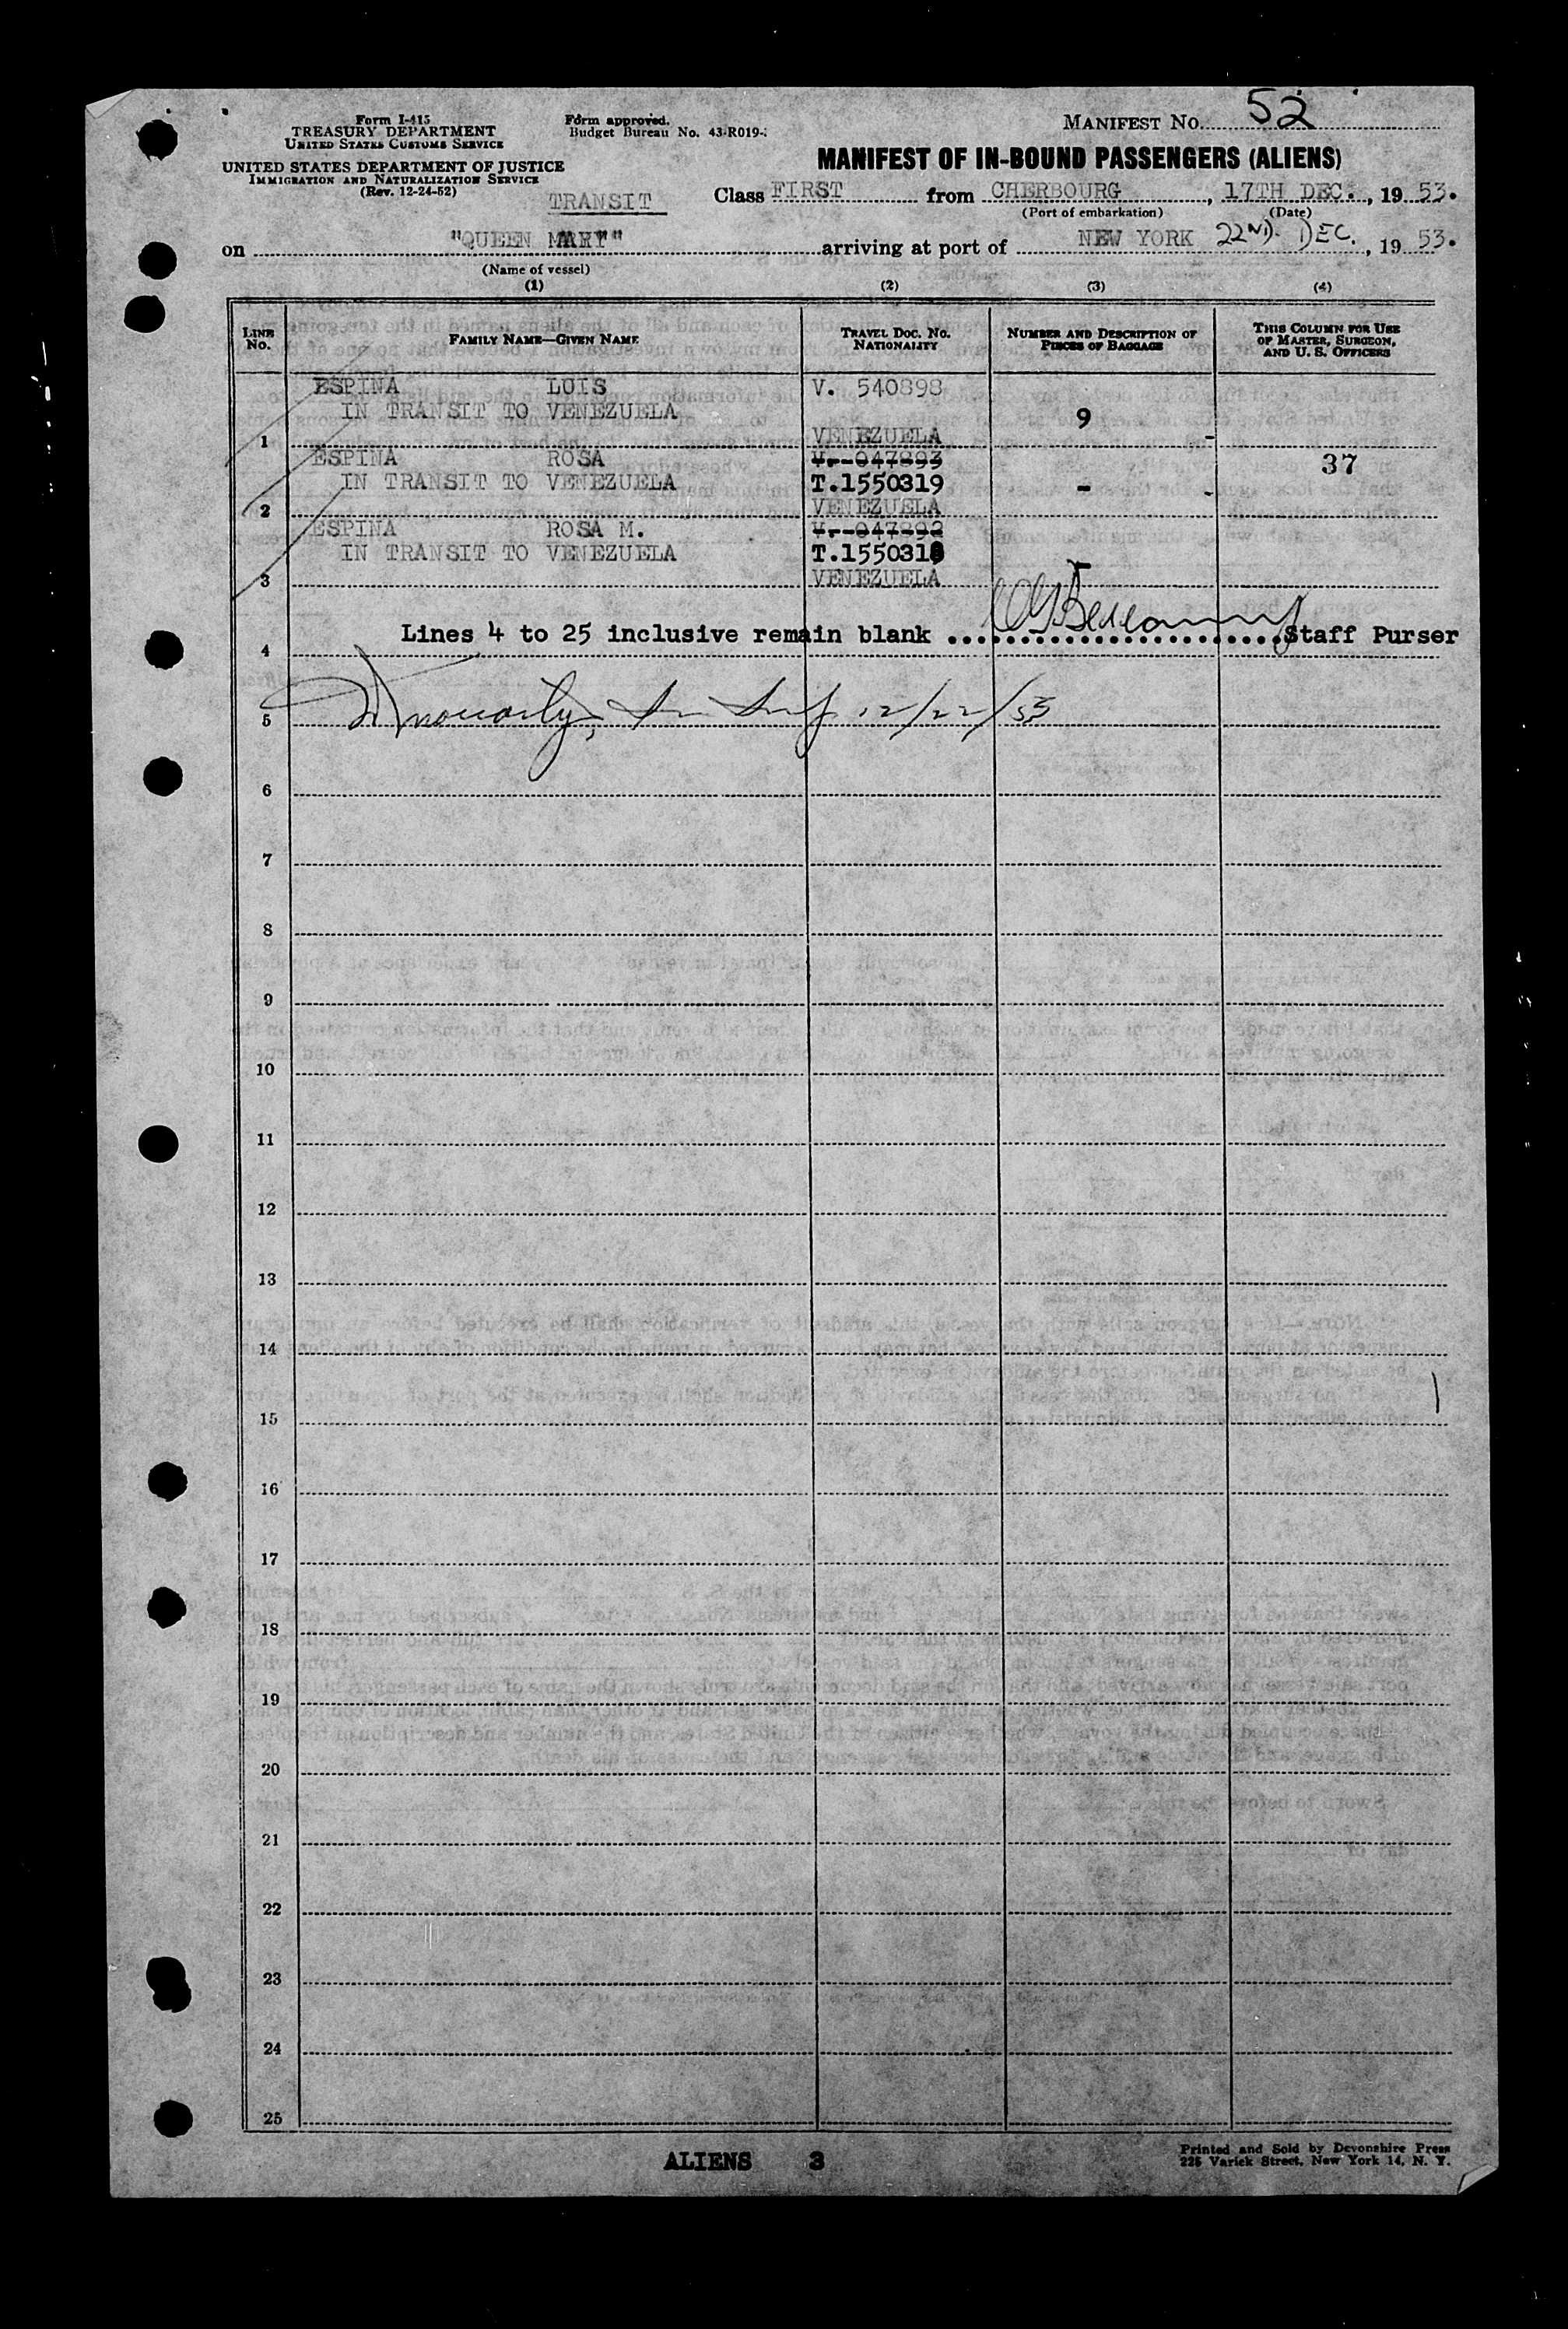 Form I-415
TREASURY DEPARTMENT
UNITED STATES CUSTOMS SERVICE
UNITED STATES DEPARTMENT OF JUSTICE
IMMIGRATION AND NATURALIZATION SERVICE
(Rev. 12-24-52)
Form approved.
Budget Bureau No. 43-R019-
MANIFEST No. 52
MANIFEST OF IN-BOUND PASSENGERS (ALIENS)
TRANSIT
Class FIRST from CHERBOURG, 17TH DEC., 1953.
(Port of embarkation) (Date)
on "QUEEN MARY" arriving at port of NEW YORK 22ND. DEC., 1953.
(Name of vessel)
(1) (2) (3) (4)
LINE No. FAMILY NAME—GIVEN NAME TRAVEL DOC. NO. NATIONALITY NUMBER AND DESCRIPTION OF PIECES OF BAGGAGE THIS COLUMN FOR USE OF MASTER, SURGEON, AND U. S. OFFICERS
ESPINA LUIS V. 540898
IN TRANSIT TO VENEZUELA 9
1 VENEZUELA -
ESPINA ROSA V.-047893 37
IN TRANSIT TO VENEZUELA T.1550319 - -
2 VENEZUELA
ESPINA ROSA M. V.-047892
IN TRANSIT TO VENEZUELA T.1550318
3 VENEZUELA -
Lines 4 to 25 inclusive remain blank Staff Purser
4
5 12/22/53
6
7
8
9
10
11
12
13
14
15
16
17
18
19
20
21
22
23
24
25
ALIENS 3
Printed and Sold by Devonshire Press
225 Varick Street, New York 14, N. Y.